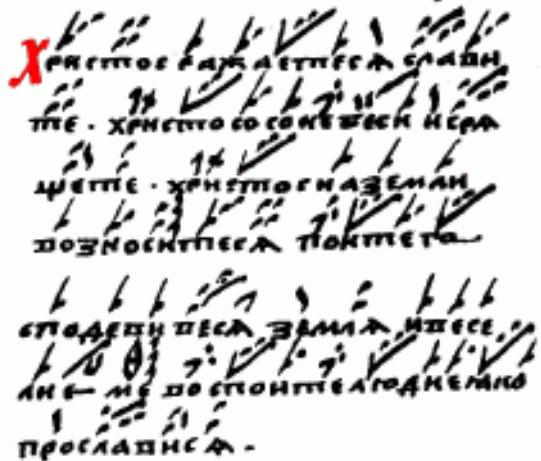 Христос ражаетесѧ слави
те · христосо сонебеси исрѧ
щете · христос на земли
возноситесѧ поите го
сподеви весѧ землѧ ивесе
лие ме воспоите людие яко
прослависѧ ·